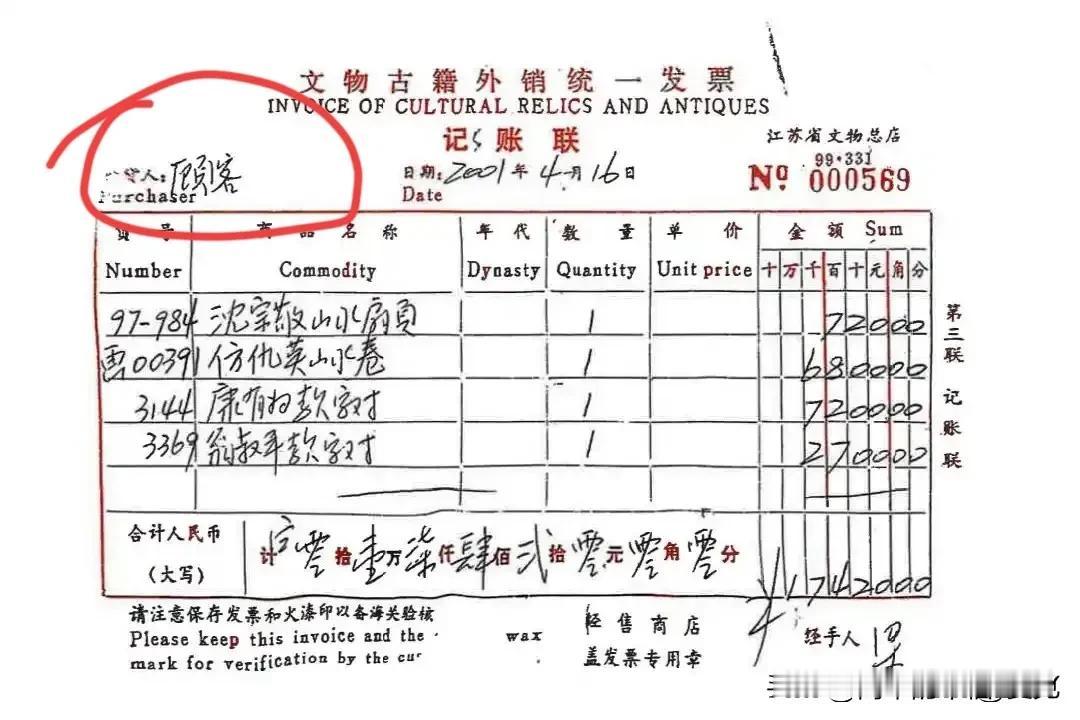 文物古籍外销统一发票
INVOICE OF CULTURAL RELICS AND ANTIQUES
记账联
江苏省文物总店
货人：顾客
Purchaser
日期：2001年4月16日
Date
99·331
№ 000569
货号 商品名称 年代 数量 单价 金额 Sum
Number Commodity Dynasty Quantity Unit price 十万千百十元角分
97-984 沈宗敬山水扇頁 1 72000
00391 仿仇英山水卷 1 680000
3144 康有为款字对 1 720000
3369 翁叔平款字对 1 270000
合计人民币
(大写)
计 零拾壹万柒仟肆佰贰拾零元零角零分 1742000
第三联 记账联
请注意保存发票和火漆印以备海关验核
Please keep this invoice and the wax
mark for verification by the cus
经售商店
盖发票专用章
经手人